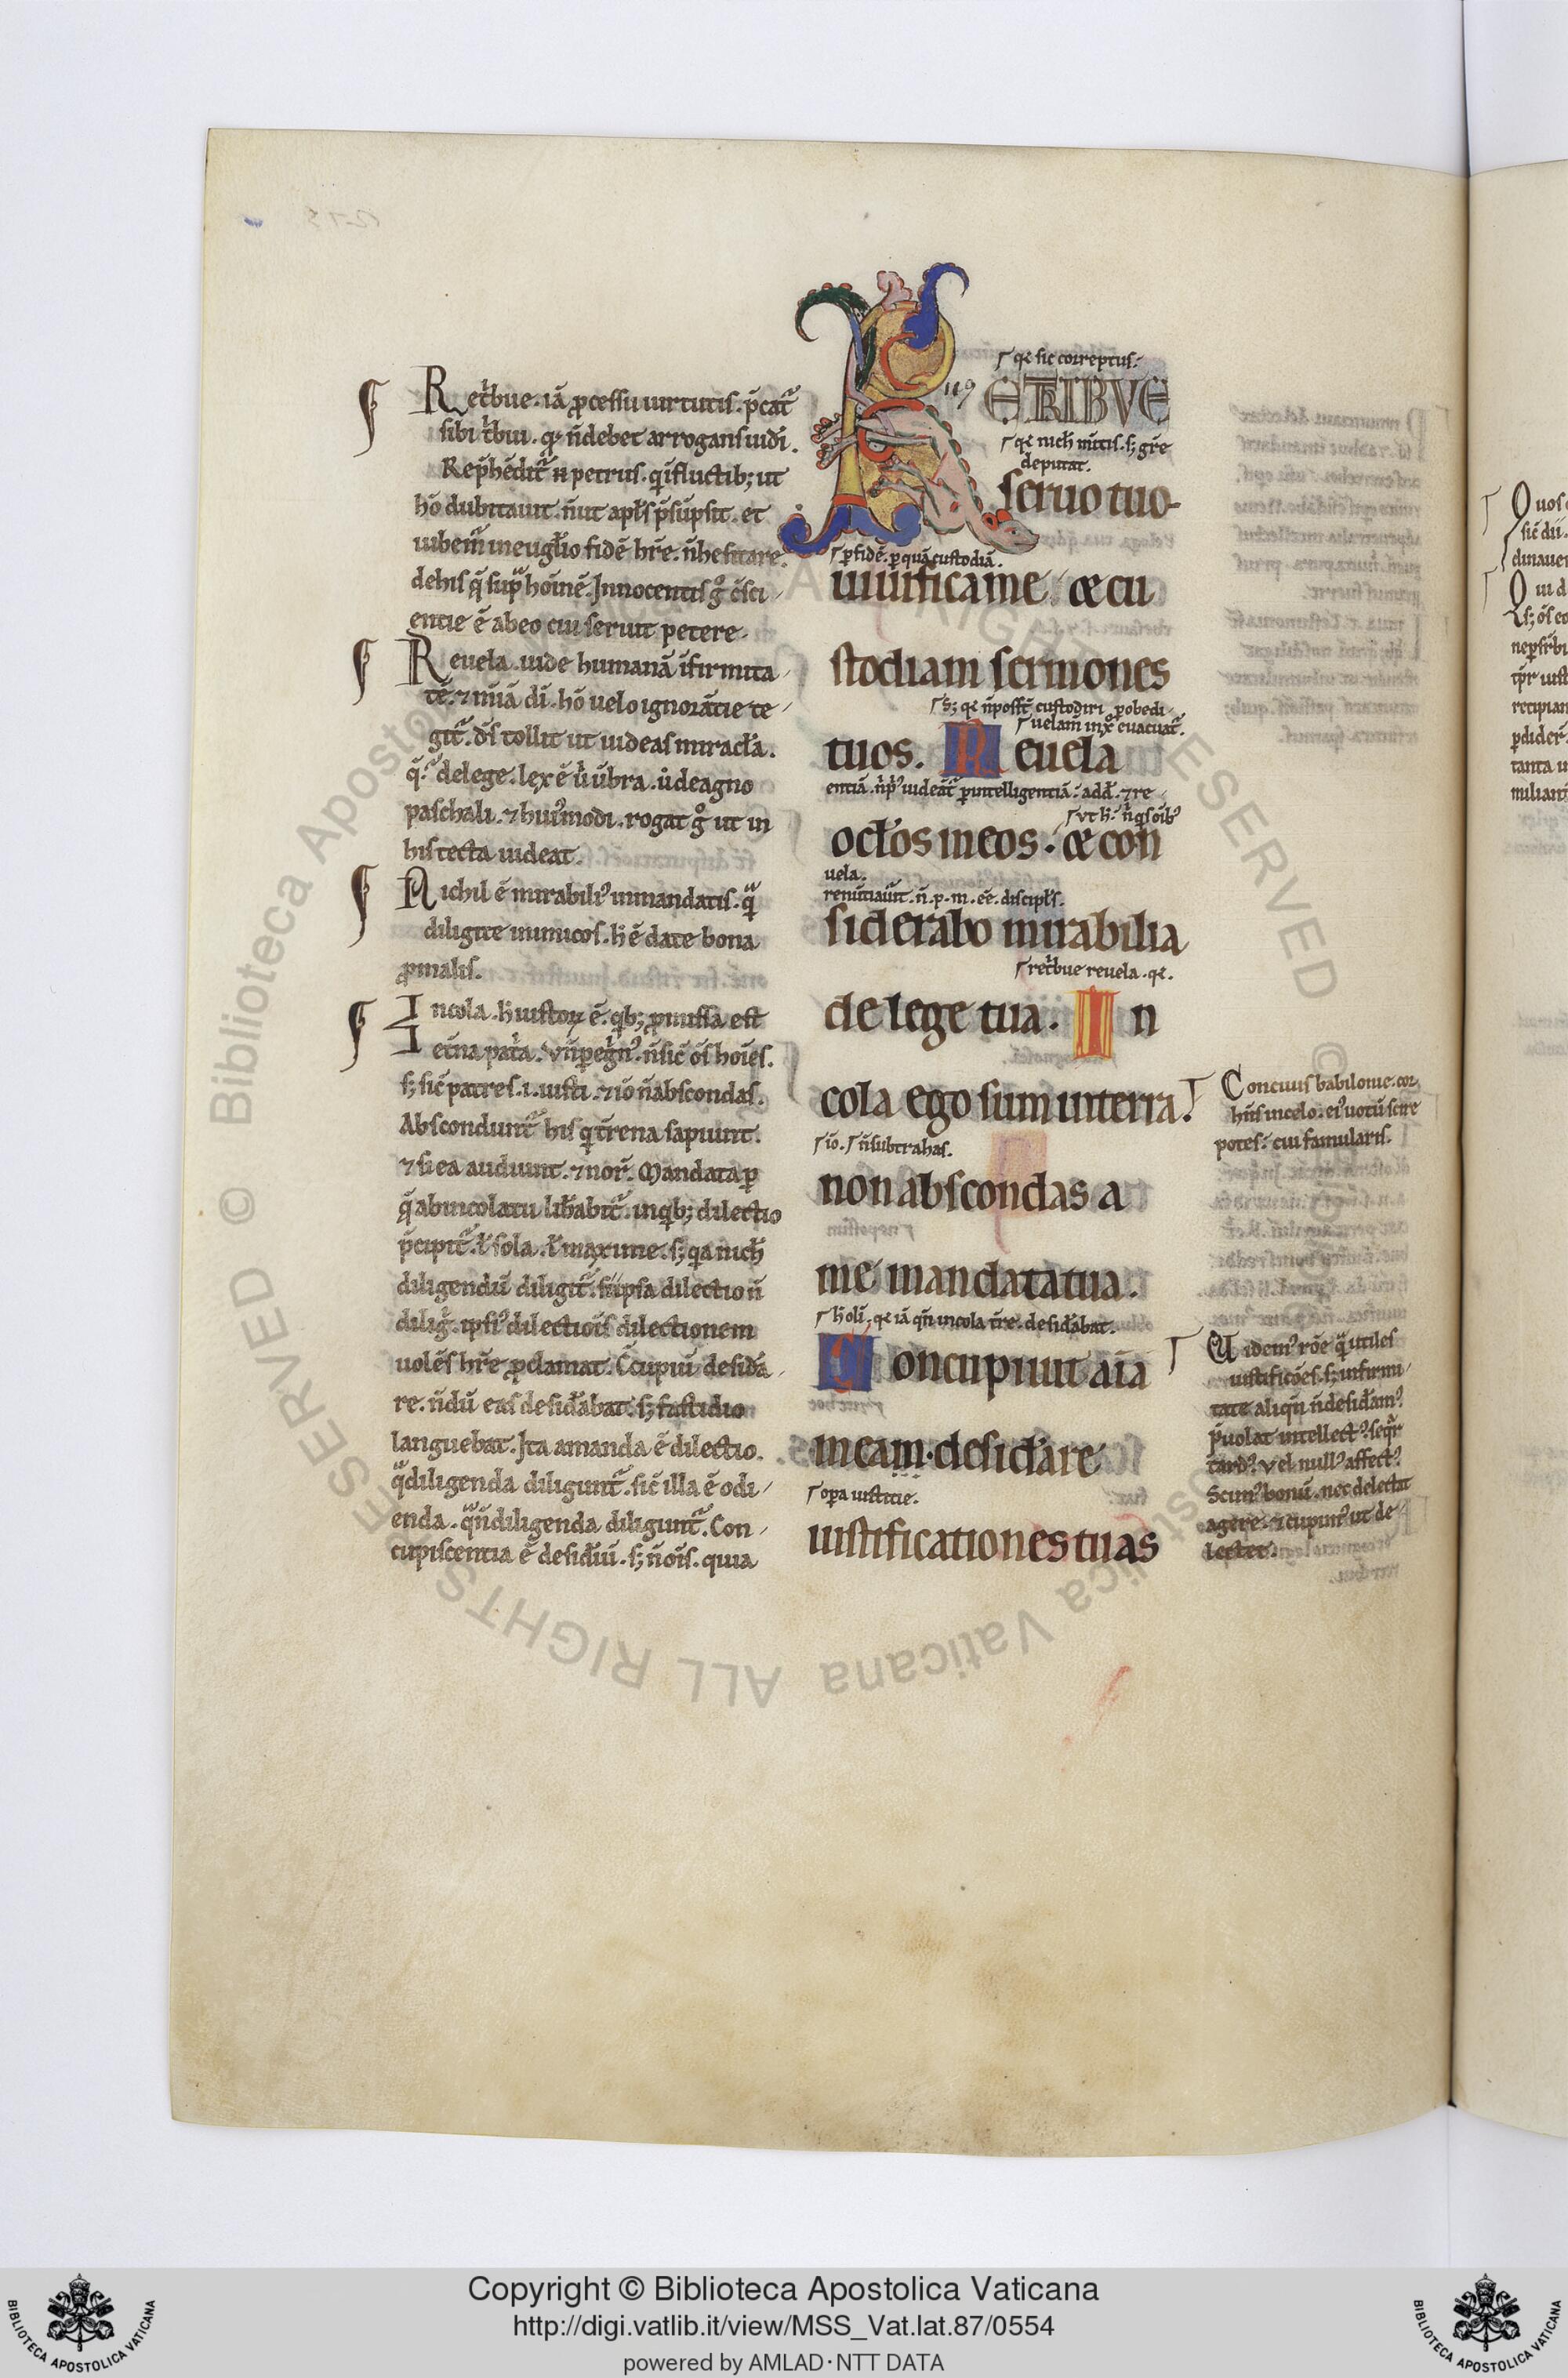 Ret̄bue. iā p̄cessu uirtutis. p̄cat᷑
sibi t̄bui. qͥ n̄ debet arrogans uidi.
Rep̄hēdit᷑ n̄ petrus. qͥ ī fluctib; ut
hō dubitauit. n̄ ut apl̄s p̄sūpsit. et
iubem᷑ in eugl̄io fidē hr̄e. n̄ hesitare.
de his q̄ sup̄ hoīnē. Innocentis gͦ c̄sci
entie ē ab eo cui seruit petere.
Reuela. uide humanā īfirmita
tē. ⁊ mīā dī. hō uelo ignorātie te
git᷑. dr̄s tollit ut uideas miracl̄a.
de lege. lex ē ūbra. ū de agno
paschali. ⁊ huiꝰmodi. rogat gͦ ut in
his tecta uideat.
Nichil ē mirabiliꝰ in mandatis. qᷓ
diligite inimicos. h̄ ē date bona
ꝓ malis.
Incola. h̄ iustoꝝ ē. qͥb; ꝓmissa est
et̄na pat̄a. Vn̄ peḡnꝰ. n̄ sic̄ oēs hoīes.
s; sic̄ patres .i. iusti. ⁊ iō n̄ abscondas.
Abscondunt᷑ his qͥ t̄rena sapiunt.
⁊ si ea audiunt. ⁊ nor̄. Mandata ꝑ
q̄ ab incolatu lib̄abit᷑. in qͥb; dilectio
p̄cipit᷑. ł sola. ł maxime. s; qͥa nich̄
diligendū diligit᷑. si ipsa dilectio n̄
dilig᷑. ipsiꝰ dilectiōis dilectionem
uolēs hr̄e ꝓclamat. C̄cupiui desid̄a
re. n̄dū eas desid̄abat. s; fastidio
languebat. Ita amanda ē dilectio.
qᷓ diligenda diligunt᷑. sic̄ illa ē odi
enda. qᷓ n̄ diligenda diligunt᷑. Con
cupiscentia ē desid̄iū. s; n̄ oīs. quia
119
qꝛ sic correptus.
RETRIBVE
qꝛ nich̄ m̄itis. s; gr̄e
deputat.
seruo tuo
ꝑ fidē. ꝑ quā custodiā.
uiuifica me ⁊ cu
stodiam sermones
S; qꝛ n̄ posset᷑ custodiri ꝑ obedi
uelam̄ in xͦ euacuat᷑.
tuos. Reuela
entiā. uideāt᷑ ꝑ intelligentiā. add̄. ⁊ re
oculos meos. ⁊ con
uela.
renūtiauit. n̄. p. m. eē. discipl̄s.
siderabo mirabilia
ret̄bue reuela. qꝛ.
de lege tua. In
cola ego sum in terra.
iō. n̄ subtrahas.
non abscondas a
me mandata tua.
h̄ olī. qꝛ iā qn̄ incola t̄re. desid̄abat.
Concupiuit aīa
meam desid̄are
opa iustitie.
iustificationes tuas
Conciuis babilonie. cor
h̄iis in celo. eiꝰ uotū scire
potes. cui famularis.
Uidemꝰ rōe qᷓ utiles
iustificōes. s; infirmi
tate aliqn̄ n̄ desid̄amꝰ.
p̄uolat intellectꝰ. seqͥr̄
tardꝰ. vel nullꝰ affectꝰ.
Scimꝰ bonū. nec delectat
agere. ⁊ cupimꝰ ut de
lectet.
Copyright © Biblioteca Apostolica Vaticana
http://digi.vatlib.it/view/MSS_Vat.lat.87/0554
powered by AMLAD·NTT DATA
BIBLIOTECA APOSTOLICA VATICANA
BIBLIOTECA APOSTOLICA VATICANA
© Biblioteca Apostolica Vaticana ALL RIGHTS RESERVED